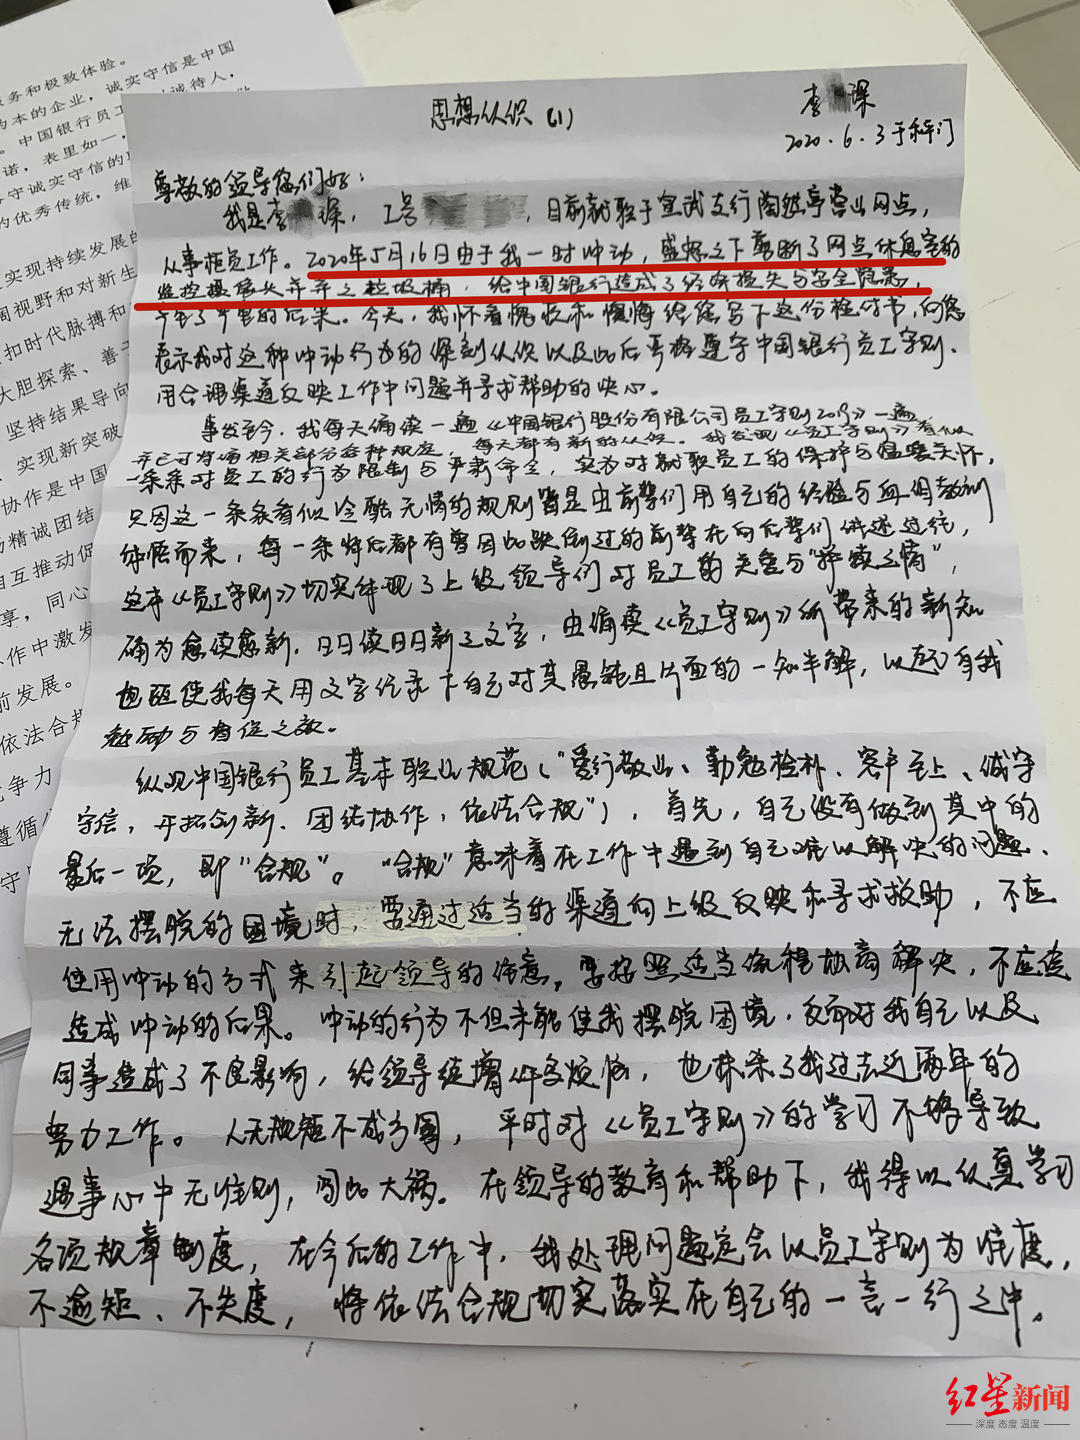 服务和极致体验。
为本的企业，诚实守信是中国
中国银行员工
诚待人，
诺，表里如一，
守诚实守信的
的优秀传统，维
实现持续发展的
阔视野和对新生
扣时代脉搏和
大胆探索、善于
坚持结果导向
实现新突破
协作是中国
精诚团结
相互推动促
享，同心
作中激发
前发展。
依法合规
争力
遵循
守
思想认识（1）
李 琛
2020.6.3于和平门
尊敬的领导您们好：
我是李 琛，工号 ，目前就职于宣武支行陶然亭营业网点，
从事柜员工作。2020年5月16日由于我一时冲动，盛怒之下剪断了网点休息室的
监控摄像头并弃之垃圾桶，给中国银行造成了经济损失与安全隐患，
了严重的后果。今天，我怀着愧疚和懊悔给您写下这份检讨书，向您
表示我对这种冲动行为的深刻认识以及此后严格遵守中国银行员工守则、
用合理渠道反映工作中问题并寻求帮助的决心。
事发至今，我每天偏读一遍《中国银行股份有限公司员工守则2019》一遍
并已对前面相关部分各种规定，每天都有新的认识。我发现《员工守则》看似
一条条对员工的行为限制与严肃命令，实为对就职员工的保护与温馨关怀，
只因这一条条看似冷酷无情的规则皆是由前辈们用自己的经验与血泪教训
体悟而来，每一条背后都有曾因此跌倒过的前辈在向后辈们讲述过往，
这本《员工守则》切实体现了上级领导们对员工的关爱与"舐犊之情"，
确为愈读愈新，日日读日日新之文字，由偏读《员工守则》所带来的新知
也驱使我每天用文字记录下自己对其愚钝且片面的一知半解，以起自我
勉励与督促之效。
纵观中国银行员工基本职业规范（"爱行敬业、勤勉检朴、客户至上、诚实
守信，开拓创新、团结协作，依法合规"），首先，自己没有做到其中的
最后一项，即"合规"。"合规"意味着在工作中遇到自己难以解决的问题、
无法摆脱的困境时，要通过适当的渠道向上级反映和寻求救助，不应
使用冲动的方式来引起领导的注意，要按照适当流程协商解决，不应该
造成冲动的后果。冲动的行为不但未能使我摆脱困境，反而对我自己以及
同事造成了不良影响，给领导徒增许多烦恼，也抹杀了我过去近两年的
努力工作。人无规矩不成方圆，平时对《员工守则》的学习不够导致
遇事心中无准则，闯此大祸。在领导的教育和帮助下，我得以认真学习
各项规章制度，在今后的工作中，我处理问题定会以员工守则为准度，
不逾矩、不失度，将依法合规切实落实在自己的一言一行之中。
红星新闻
深度 态度 温度